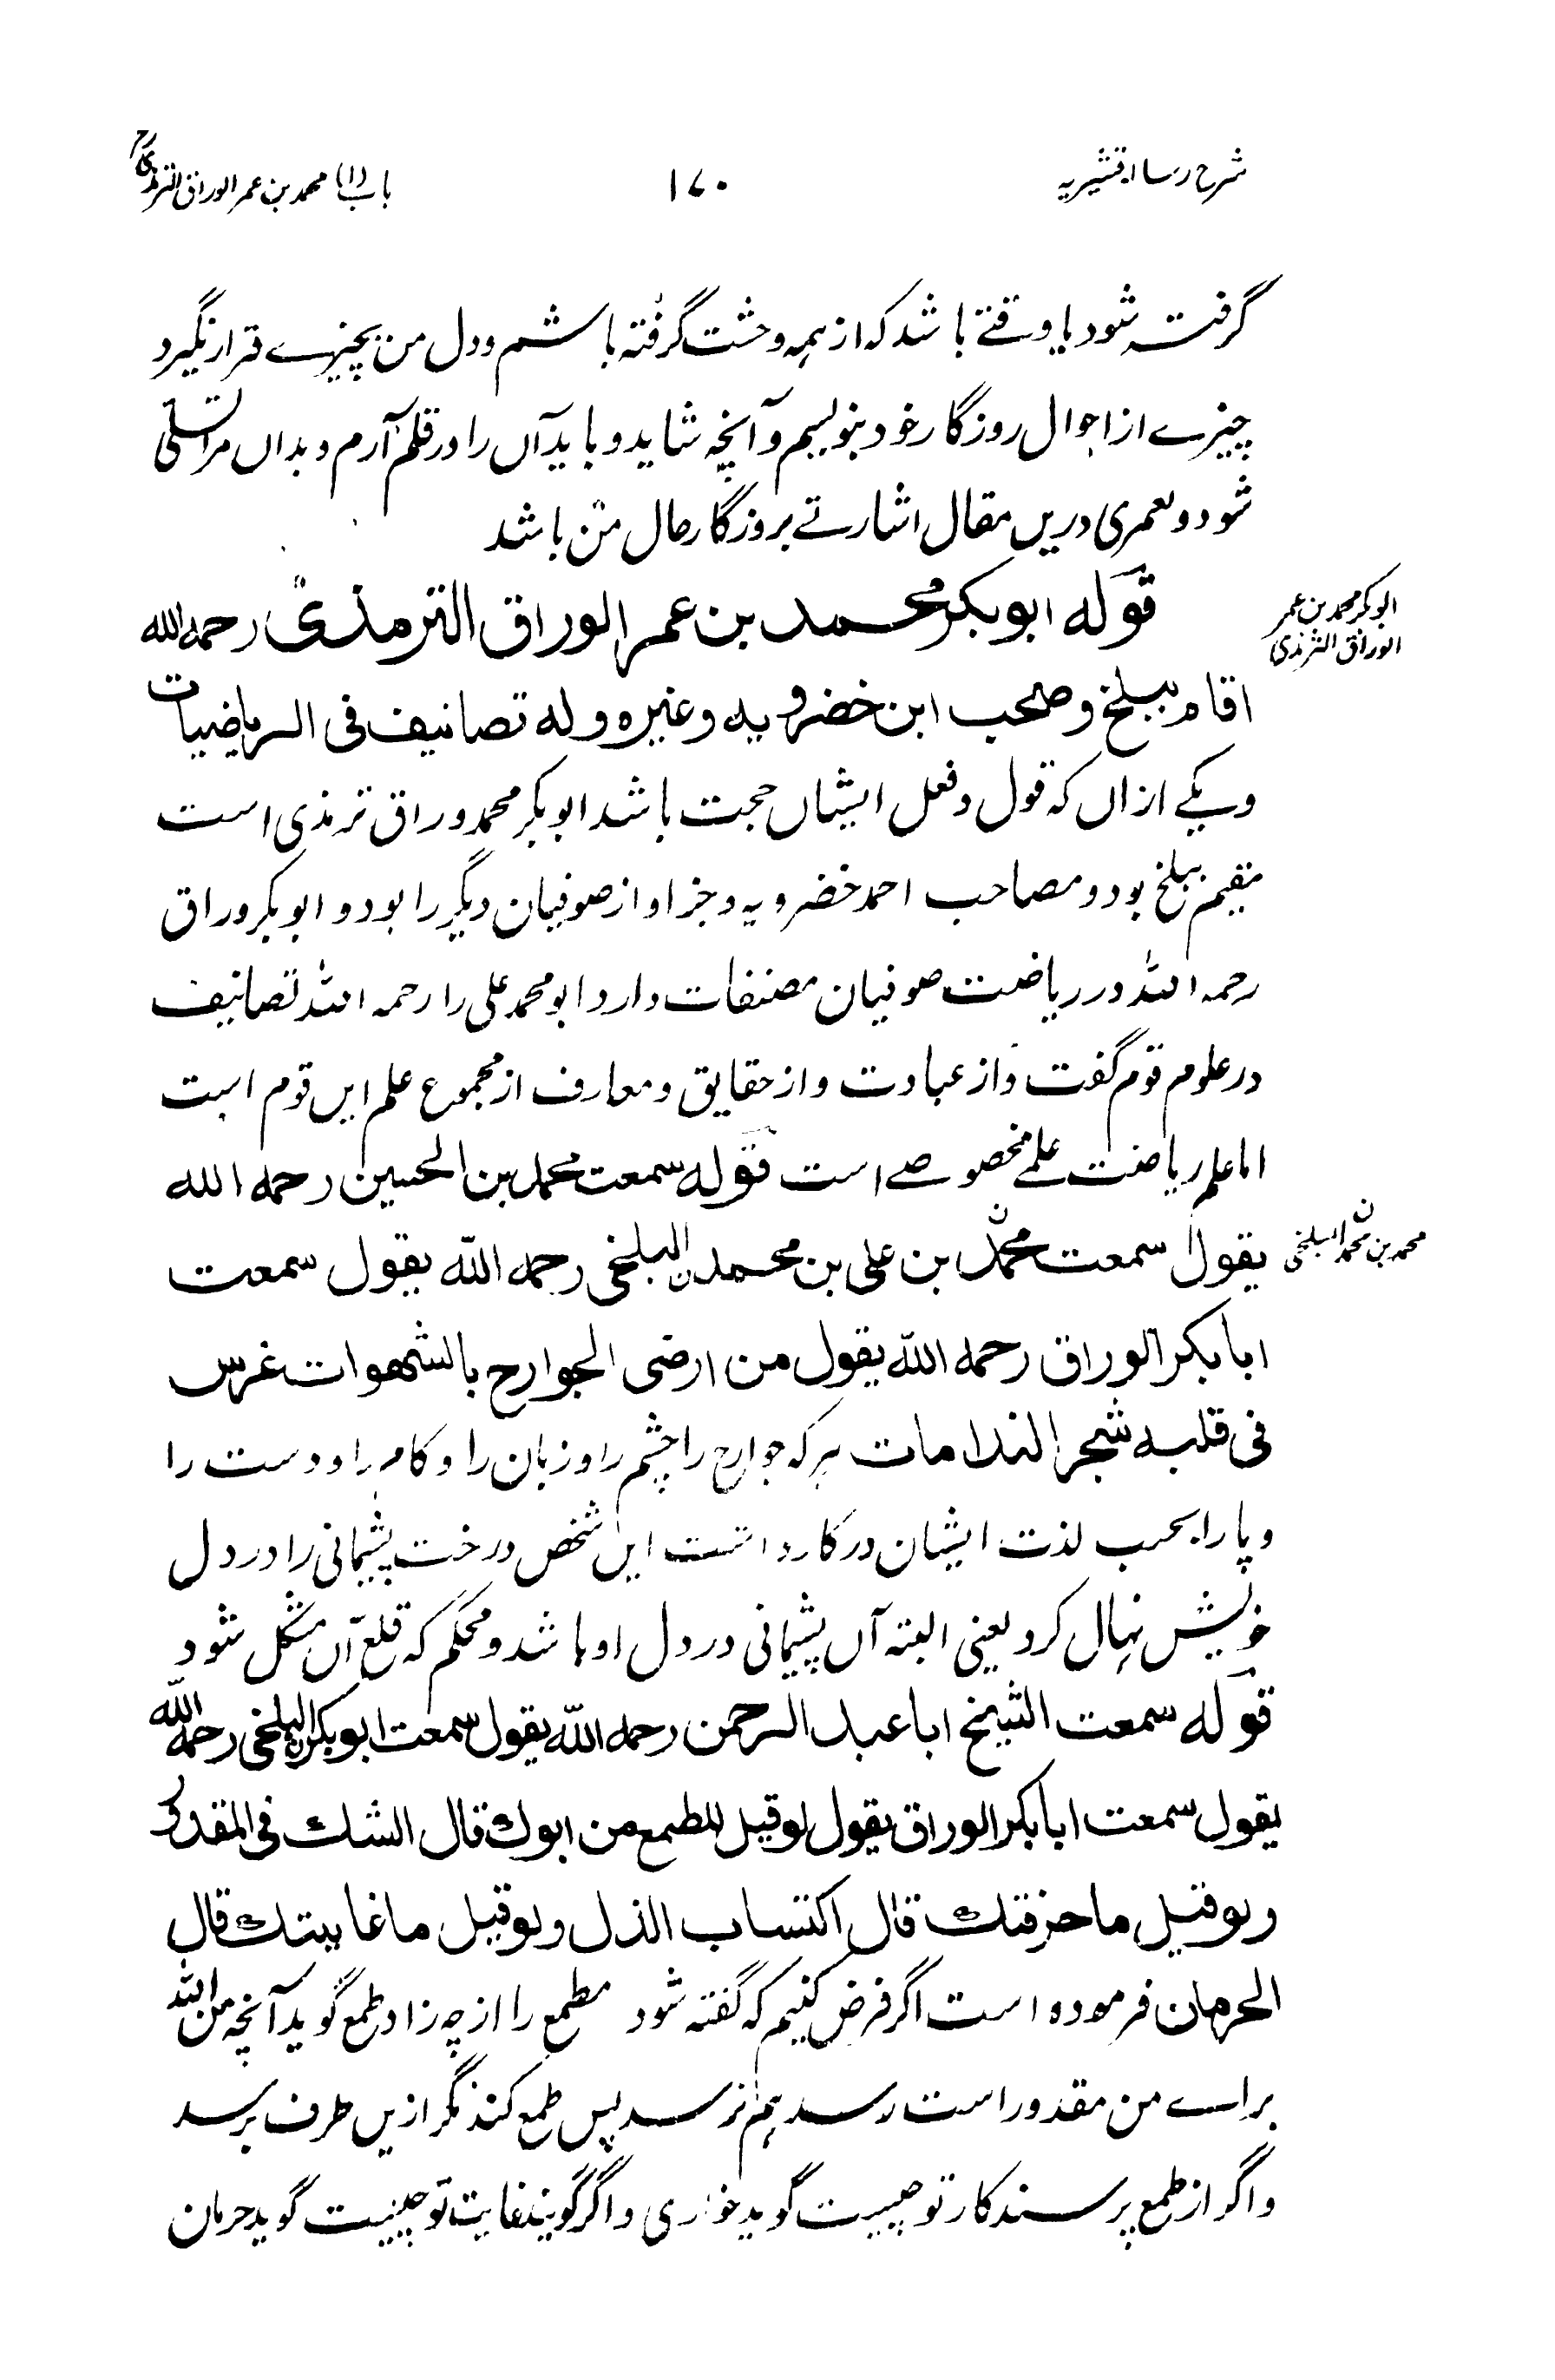 شرح رسالہ قشیریہ
۱۷۰
باب (۱) محمد بن عمر الوراق الترمذیؒ
گرفتہ شود یا وقتے باشد کہ از ہمہ وحشت گرفتہ باشم و دل من بچیزے قرار نگیرد
چیزے از احوال روزگار خود بنویسم و آنچہ شاید و باید آں را در قلم آرم و بداں مرا تسلی
شود و لعمری دریں مقال اشارتے بروزگار حال من باشد
قولہ ابو بکر محمد بن عمر الوراق الترمذی رحمہ اللہ
ابو بکر محمد بن عمر
الوراق الترمذی
اقام ببلخ و صحب ابن خضرویہ و غیرہ و لہ تصانیف فی الریاضیات
و یکے ازاں کہ قول و فعل ایشاں حجت باشد ابو بکر محمد وراق ترمذی است
مقیم ببلخ بود و مصاحب احمد خضرویہ و جز او از صوفیان دیگر را بود و ابو بکر وراق
رحمہ اللہ در ریاضت صوفیان مصنفات دارد ابو محمد علی را رحمہ اللہ تصانیف
در علوم قوم گفت و از عبادت و از حقایق و معارف از مجموع علم ایں قوم است
اما علم ریاضت علمے مخصوصے است قولہ سمعت محمد بن الحسین رحمہ اللہ
یقول سمعت محمد بن علی بن محمد البلخی رحمہ اللہ یقول سمعت
محمد بن محمد البلخی
ابا بکر الوراق رحمہ اللہ یقول من ارضی الجوارح بالشھوات غرس
فی قلبہ شجر الندامات ہر کہ جوارح را چشم را و زبان را و کام را و دست را
و پا را بحسب لذت ایشان در کار داشت ایں شخص درخت پشیمانی را در دل
خویش نہال کرد یعنی البتہ آں پشیمانی در دل او باشد و محکم کہ قلع آں مشکل شود
قولہ سمعت الشیخ ابا عبد الرحمن رحمہ اللہ یقول سمعت ابو بکر البلخی رحمہ اللہ
یقول سمعت ابا بکر الوراق یقول لو قیل للطمع من ابوک قال الشک فی المقدور
و لو قیل ما حرفتک قال اکتساب الذل و لو قیل ما غایتک قال
الحرمان فرمودہ است اگر فرض کنیم کہ گفتہ شود مطمع را از چہ زاد طمع گوید آنچہ من اللہ
براے من مقدور است رسد ہم نرسد پس طمع کند مگر ازیں طرف برسد
و اگر از طمع پرسند کار تو چیست گوید خواری و اگر گویند غایت تو چیست گوید حرمان